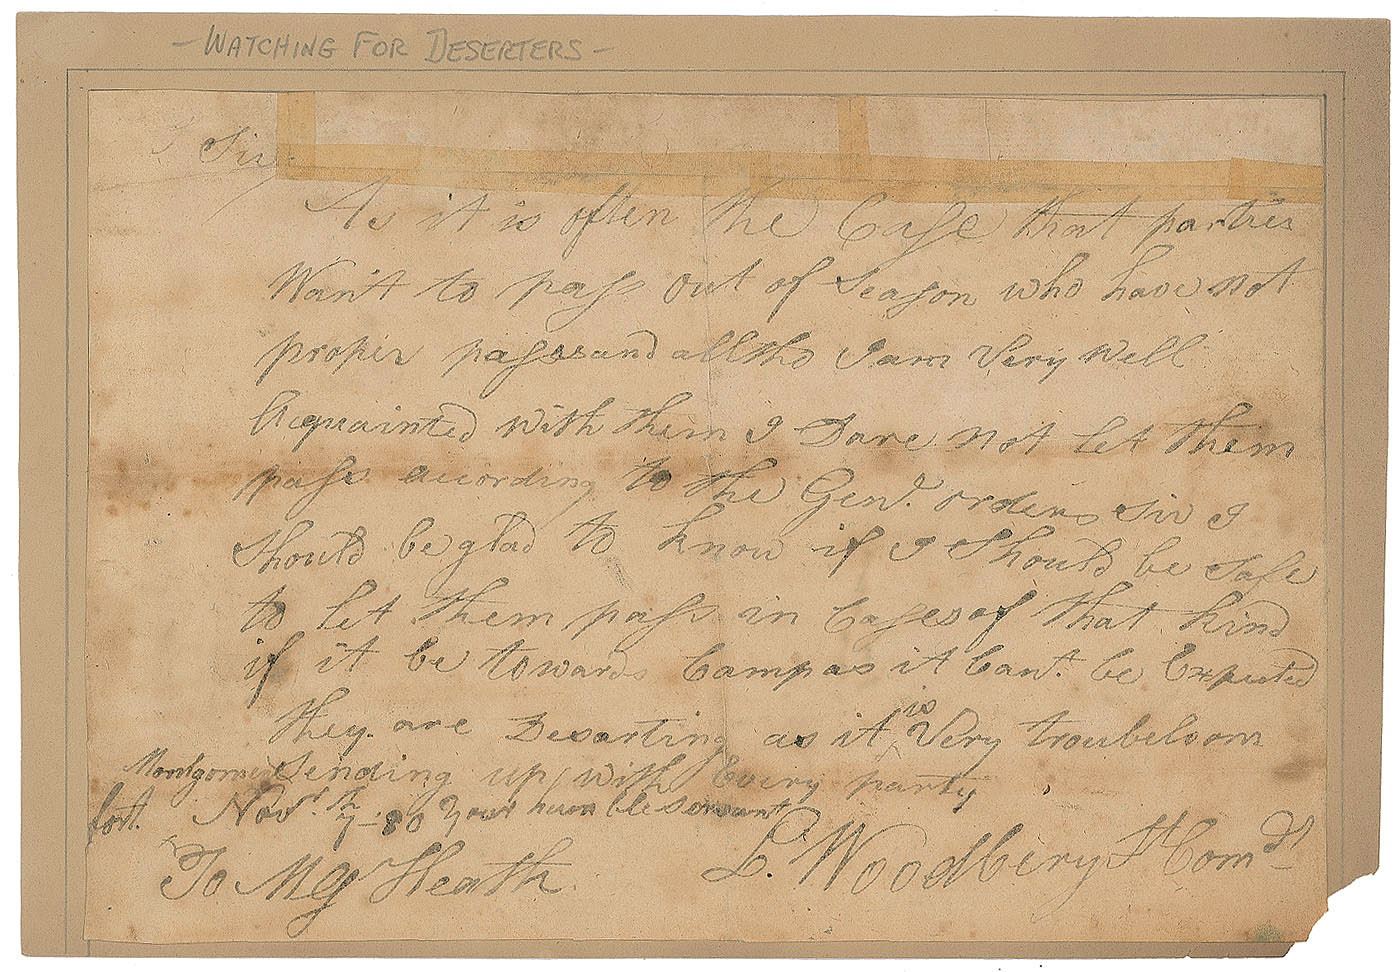 - WATCHING FOR DESERTERS -
Sir
As it is often the Case that parties
Want to pass out of Season who have not
proper passes and alltho I am Very well
Acquainted with them I Dare not let them
pass according to the Genl. orders Sir I
Should be glad to know if I Should be safe
to let them pass in Cases of that kind
if it be towards Camp as it Cant. be Expected
they are Desarting as it is Very troubelsom
Sending up with Every party
Montgomery
fort. Novr. 7th - 80 Your humble servant
To MG Heath L. Woodbery Lt Comdt